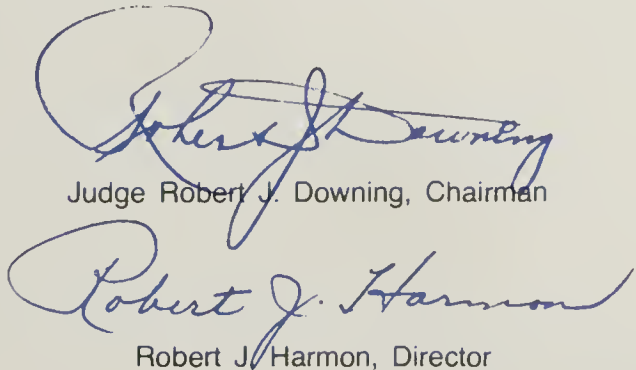 Robert J Downing
Judge Robert J. Downing, Chairman
Robert J. Harmon
Robert J. Harmon, Director